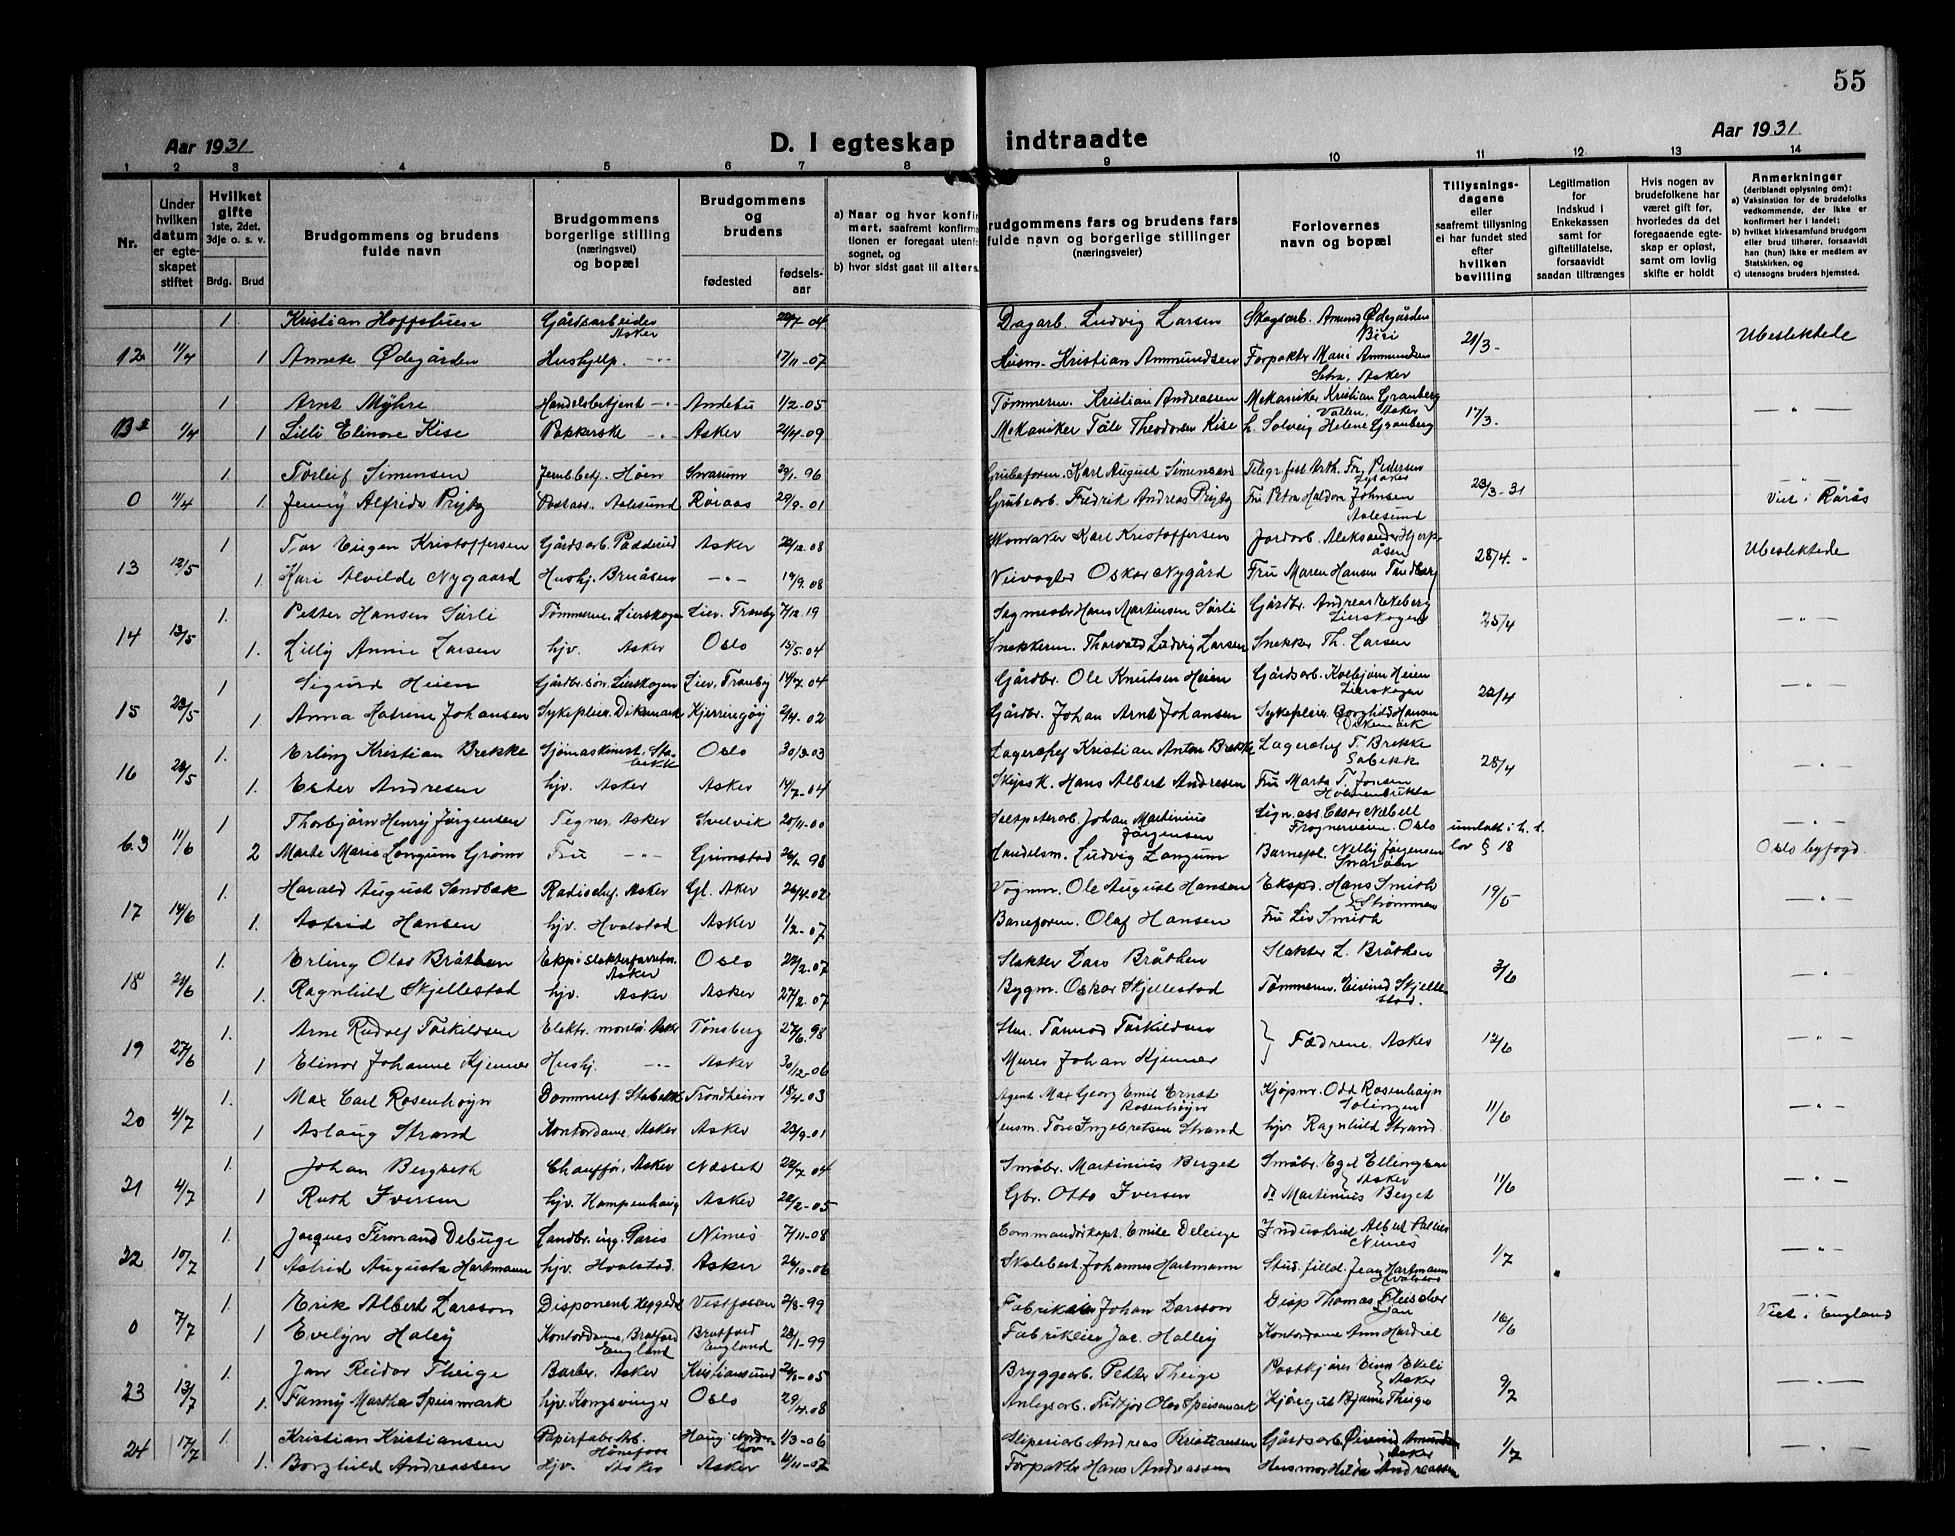 55
Aar 1931 D. I egteskap indtraadte Aar 1931
1 2 3 4 5 6 7 8 9 10 11 12 13 14
Nr.
Under hvilken datum er egteskapet stiftet
Hvilket gifte 1ste, 2det, 3dje o. s. v.
Brdg. Brud
Brudgommens og brudens fulde navn
Brudgommens borgerlige stilling (næringsvei) og bopæl
Brudgommens og brudens
fødested fødsels-aar
a) Naar og hvor konfir
mert, saafremt konfirma
tionen er foregaat utenfo
sognet, og
b) hvor sidst gaat til alters.
rudgommens fars og brudens fars
fulde navn og borgerlige stillinger
(næringsveier)
Forlovernes navn og bopæl
Tillysnings-
dagene
eller
saafremt tillysning
ei har fundet sted
efter
hvilken
bevilling
Legitimation
for
Indskud i
Enkekassen
samt for
giftetillatelse,
forsaavidt
saadan tiltrænges
Hvis nogen av
brudefolkene har
været gift før,
hvorledes da det
foregaaende egte-
skap er opløst,
samt om lovlig
skifte er holdt
Anmerkninger
(deriblandt oplysning om):
a) Vaksination for de brudefolks
vedkommende, der ikke er
konfirmert her i landet;
b) hvilket kirkesamfund brudgom
eller brud tilhører, forsaavidt
han (hun) ikke er medlem av
Statskirken, og
c) utensogns bruders hjemsted.
1 Kristian Hoffstuen Gårdsarbeider Asker 04 Dagarb. Ludvig Larsen Skogsarb. Amund Ødegården Biri
12 11/4 1 Annete Ødegården Hushjelp. -"- 17/11-07 Husm. Kristian Ammundsen Forpakter Mari Ammundsen Setra, Asker 21/3- Ubeslektede
1 Arnt Myhre Handelsbetjent -"- Andebu 1/2-05 Tømmerm. Kristian Andreassen Mekaniker Kristian Granberg Vollen, Asker
1/4 1 Lilli Elinore Kise -"- Asker 21/4-09 Mekaniker Tåle Theodorsen Kise L. Solveig Helene Granberg 17/3. -"-
1. Torleif Simensen Jernbbetj. Høen Snarum 96 Grubeform. Karl August Simensen Pedersen Lysaker
0 11/4 1. Jenny Alfride Prytz Postass. Aalesund Røraas 29/9-01 Grubearb. Fredrik Andreas Prytz Fru Petra Johnsen Aalesund 23/3-31 Viet i Rörås
1 Tor Eugen Kristoffersen Gårdsarb. Padderud Asker 22/12.08 Skomaker Karl Kristoffersen Jordarb. Aleksander Hjerpåsen
13 12/5 1. Kari Alvilde Nygaard Hushj. Bruåsen -"- 19/9.08 Veivogter Oskar Nygård Fru Maren Hansen Tandberg 28/4.- Ubeslektede
1. Petter Hansen Sørli Tømmerm. Lierskogen Lier, Tranby 7/12.19 Sagmester Hans Martinsen Sørli Gårdbr. Andreas Ekeberg Lierskogen
14 13/5 1. Lilly Annie Larsen hjv. Asker Oslo 13/5.04 Snekkerm. Thorvald Ludvig Larsen Snekker Th. Larsen 25/4 -"-
1 Sigurd Heien Gårdbr.søn. Lierskogen Lier, Tranby 14/7.04 Gårdbr. Ole Knutsen Heien Gårdsarb. Kolbjørn Heien Lierskogen
15 23/5 1 Anna Katrine Johansen Sykepleier. Dikemark Kjerringøy 2/4-02 Gårdbr. Johan Arnt Johansen Sykepleier Borghild Hansen Dikemark 22/4 -"-
1. Erling Kristian Brekke Sjømaskinist. Stabekk Oslo 30/3.03 Lagerchef Kristian Anton Brekke Lagerchef T. Brekke
16 23/5 1. Ester Andresen hjv. Asker Asker 14/7-04 Skipsk. Hans Albert Andresen Fru Marta T. Jonsen 28/4 -"-
1 Thorbjørn Henry Jørgensen Tegner. Asker Svelvik 20/11-00 Salpeterarb. Johan Martinius Jørgensen Sign.ass. Næbell Frognerveien, Oslo
6.3 11/6 2 Marte Marie Longum Grønn Fru -"- Grimstad 98 Handelsm. Ludvig Longum Barnepl. Nelly Jørgensen Snarøen lov § 18 Oslo byfogd.
1. Harald August Sandbæk Asker Gl. Aker 26/4-02 Vognm. Ole August Hansen Ekspd. Hans Smith Strømmen
17 14/6 1. Astrid Hansen hjv. Hvalstad Asker 1/2-07 Baneform. Olaf Hansen Fru Liv Smith 19/5 -"-
1. Erling Olav Bråthen Asker Oslo 22/2-07 Slakter Lars Bråthen Slakter L. Bråthen
18 21/6 1. Ragnhild Skjellestad hjv. Asker Asker 27/2.07 Bygm. Oskar Skjellestad Tømmerm. Eivind Skjellestad. 3/6 -"-
1. Arne Rudolf Torkildsen Elektr. montør Asker Tønsberg 27/6.98 Torkildsen
19 27/6 1 Elinor Johanne Kjenner Hushj. -"- Asker 30/12-06 Murer Johan Kjenner Fædrene, Asker 12/6 -"-
1. Max Carl Rosenhoyn Stabekk Trondheim 18/4-03 Agent Max Georg Emil Ernst Rosenhoyn Kjøpm. Odd Rosenhoyn Solingen
20 4/7 1 Aslaug Strand Kontordame, Asker Asker 23/9-01 Lensm. Tore Ingebretsen Strand hjv Ragnhild Strand 11/6 -"-
1. Johan Bergseth Chauffør, Asker Nesset 22/7 04 Småbr. Martinius Berget Småbr. Egil Ellingsen Asker
21 4/7 1 Ruth Iversen hjv. Kampenhaug Asker 22/2-05 Gbr. Otto Iversen Martinius Berget 11/6 -"-
1. Jacques Fermand Debuge Landbr. ing. Paris Nimes 7/11-08 Commandørkapt. Emile Deleuge Industriel Albert Nimes
22 10/7 1 Astrid Augusta Hartmann hjv. Hvalstad. Asker 26/10-06 Skolebest. Johannes Hartmann Stud. filol. Jean Hartmann Hvalstad 1/7 -"-
1. Erik Albert Larsson Disponent, Heggedal Vestfossen 2/8-99 Fabrikeier Johan Larsson Disp Thomas Fleischer
0 7/7 1 Evelyn Haley Kontordame, Bratford England Bratford England 23/1-99 Fabrikeier Jac. Halley Kontordame Ann Hardiel 16/6 Viet i England
1. Jan Reidar Theige Barber. Asker Kristiansund 05 Bryggearb. Petter Theige Postkjører Einar Ekeli Asker
23 13/7 1. Fanny Martha Speismark hjv. Kongsvinger Oslo 29/4.08 Anlegsarb. Fridtjof Olav Speismark Bjarne Theige 9/7 -"-
1. Kristian Kristiansen Papirfabr. Arb. Hönefoss Haug 1/3-06 Sliperiarb. Andreas Kristiansen Gårdsarb. Øivind Amundsen Asker
24 17/7 1. Borghild Andreassen Hjv. Asker Asker 11/11-07 Forpakter Hans Andreassen Husmor Hilda Andreassen 1/7 -"-